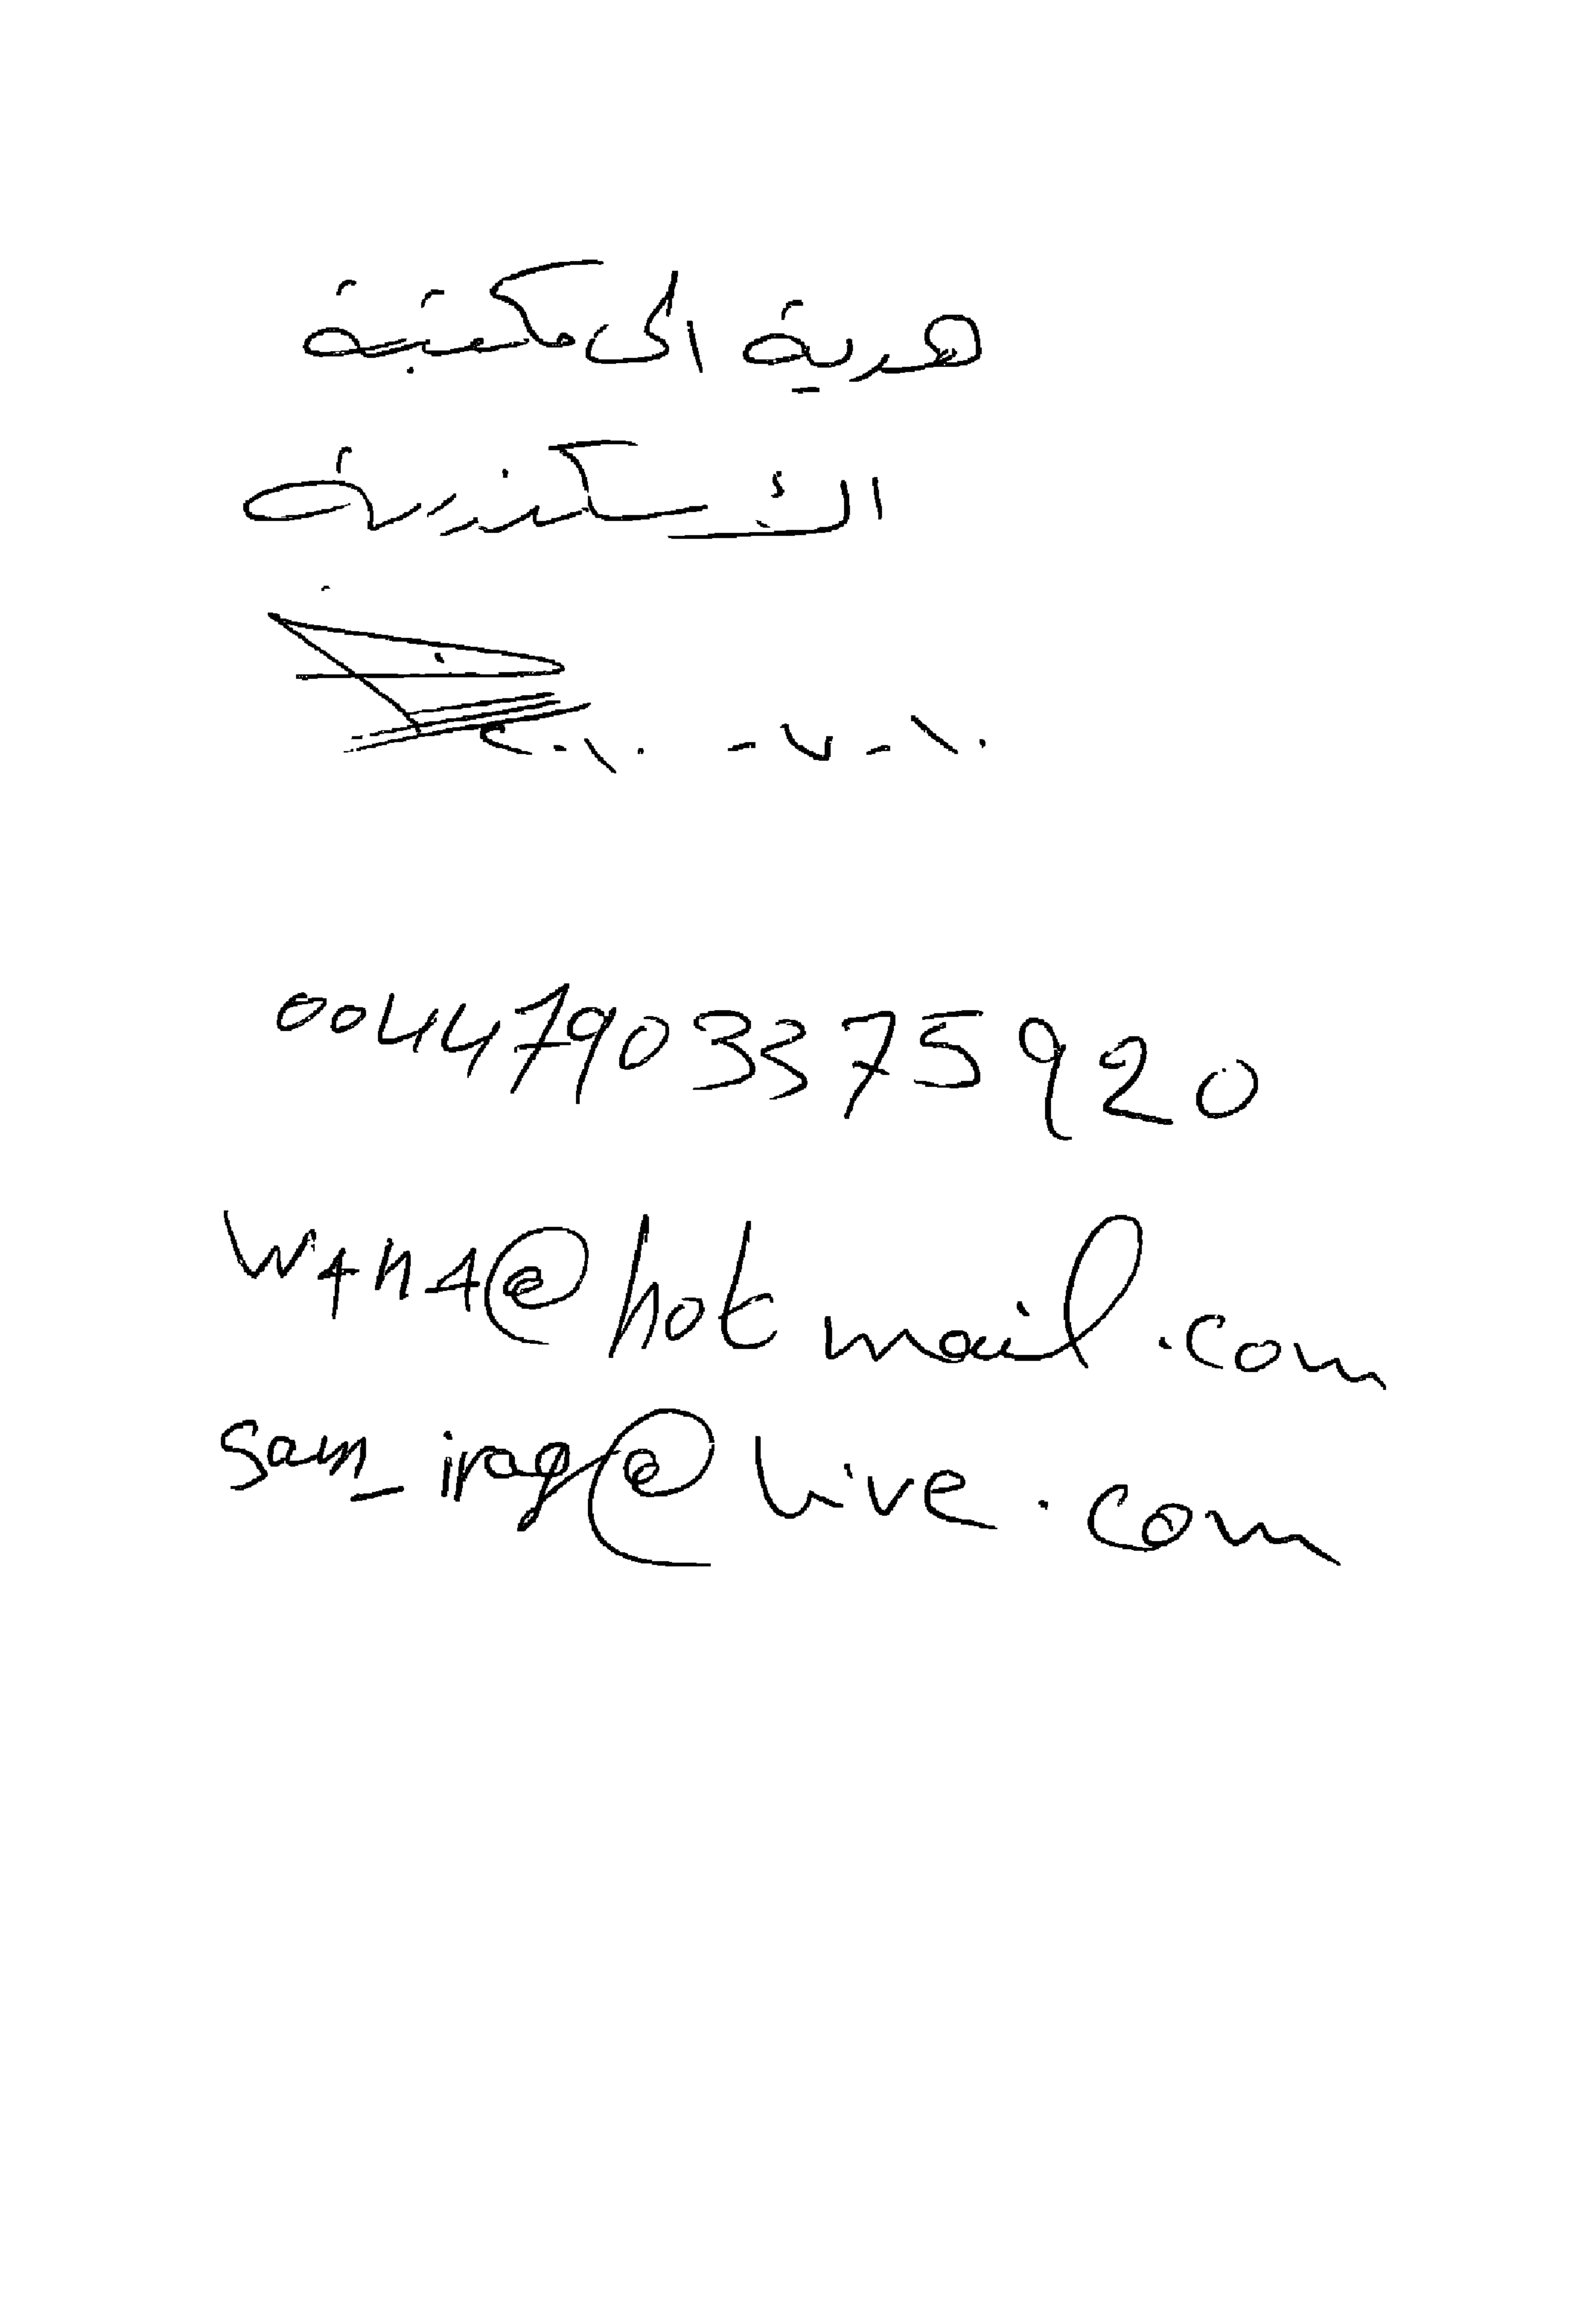 هدية الى مكتبة
الأسكندرية
٢٠١٠ - ٧ - ١٠
00447903375920
W4h4@hotmail.com
Sam_iraq@Live.com